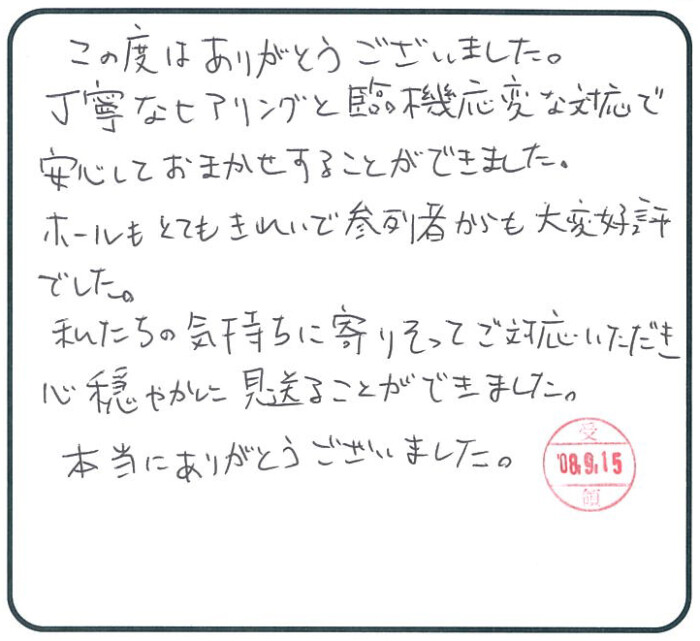 この度はありがとうございました。
丁寧なヒアリングと臨機応変な対応で
安心しておまかせすることができました。
ホールもとてもきれいで参列者からも大変好評
でした。
私たちの気持ちに寄りそってご対応いただき
心穏やかに見送ることができました。
本当にありがとうございました。
受
'08.9.15
領